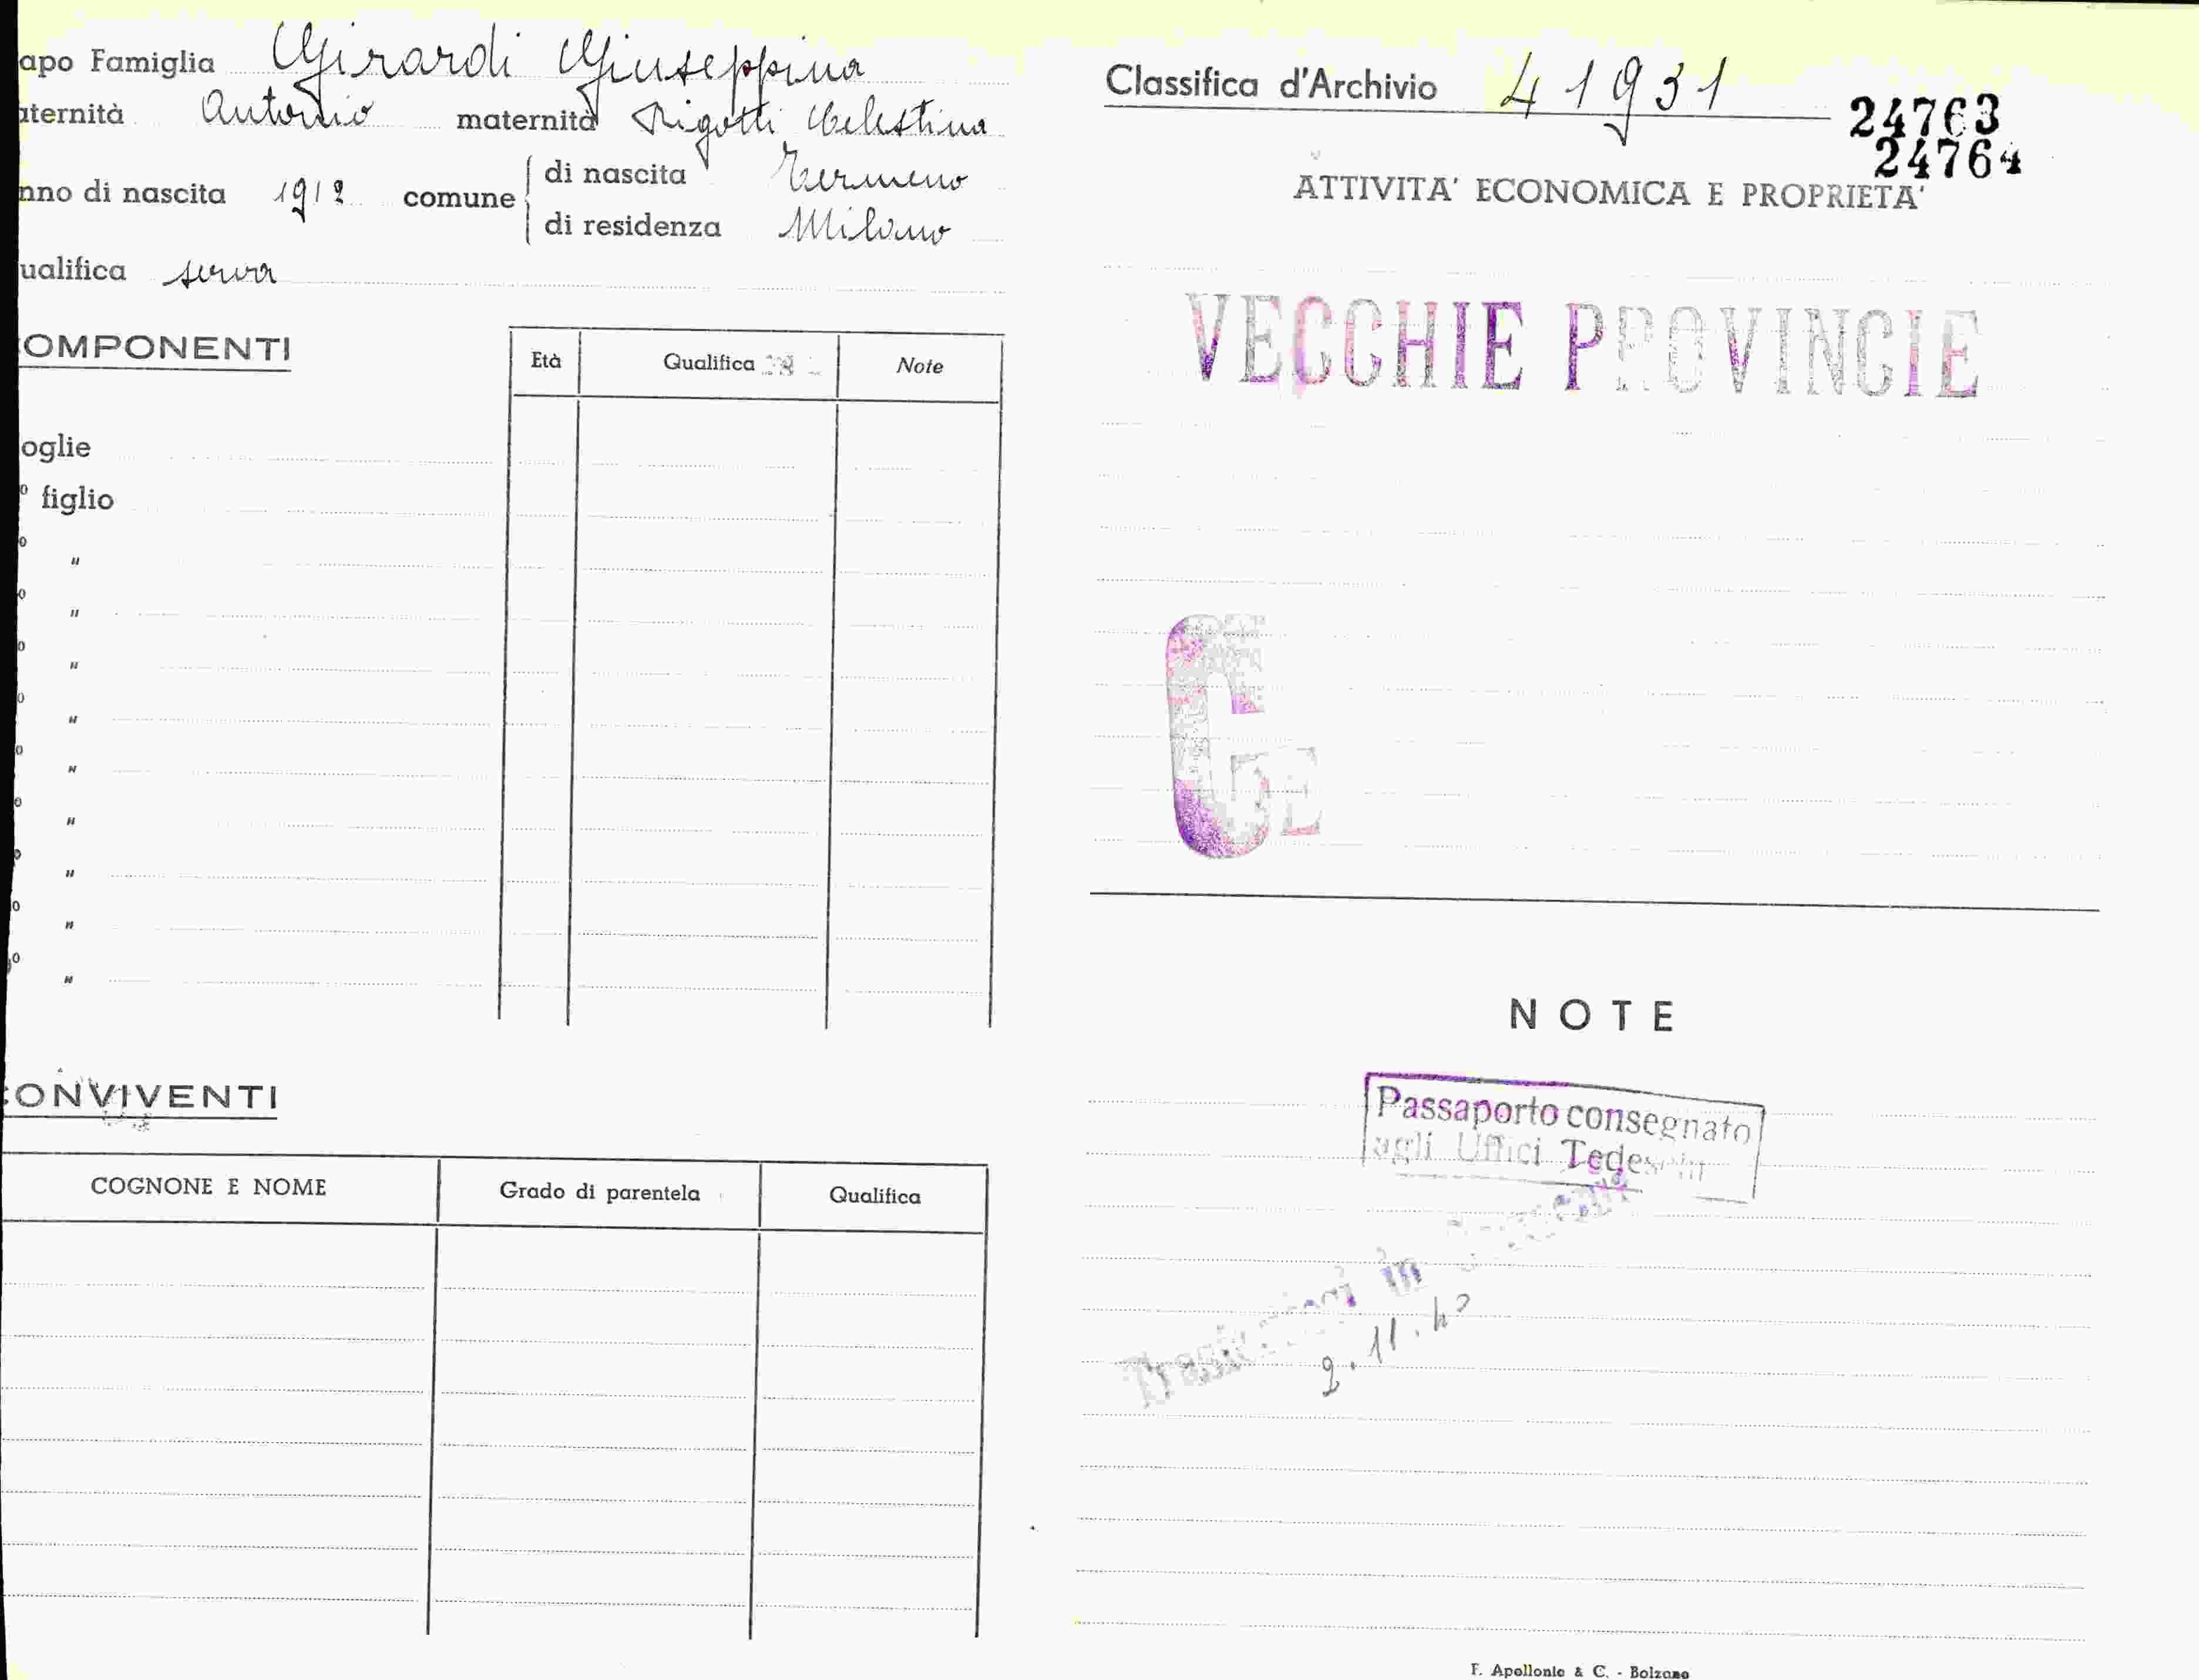 apo Famiglia Girardi Giuseppina
aternità Antonio maternità Rigotti Celestina
nno di nascita 1912 comune di nascita Termeno
di residenza Milano
ualifica serva
OMPONENTI
Età Qualifica Note
oglie
º figlio
º "
º "
º "
º "
º "
º "
º "
º "
º "
ONVIVENTI
COGNONE E NOME Grado di parentela Qualifica
Classifica d'Archivio 41931
24763
24764
ATTIVITA' ECONOMICA E PROPRIETA'
VECCHIE PROVINCIE
G E
NOTE
Passaporto consegnato
agli Uffici Tedeschi
in
F. Apollonio & C. - Bolzano